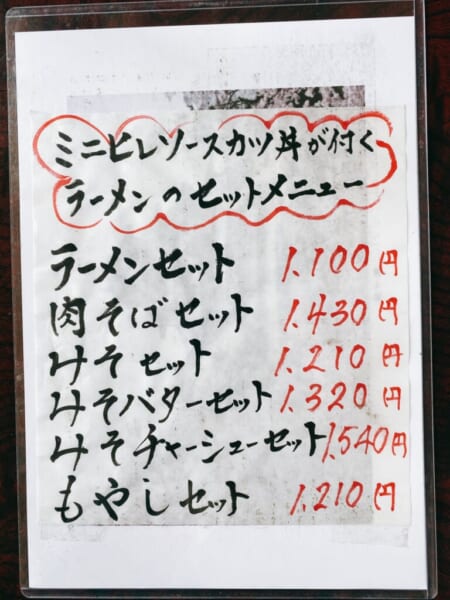 ミニヒレソースカツ丼が付く
ラーメンのセットメニュー
ラーメンセット 1.100円
肉そばセット 1.430円
みそセット 1.210円
みそバターセット 1.320円
みそチャーシューセット 1.540円
もやしセット 1.210円